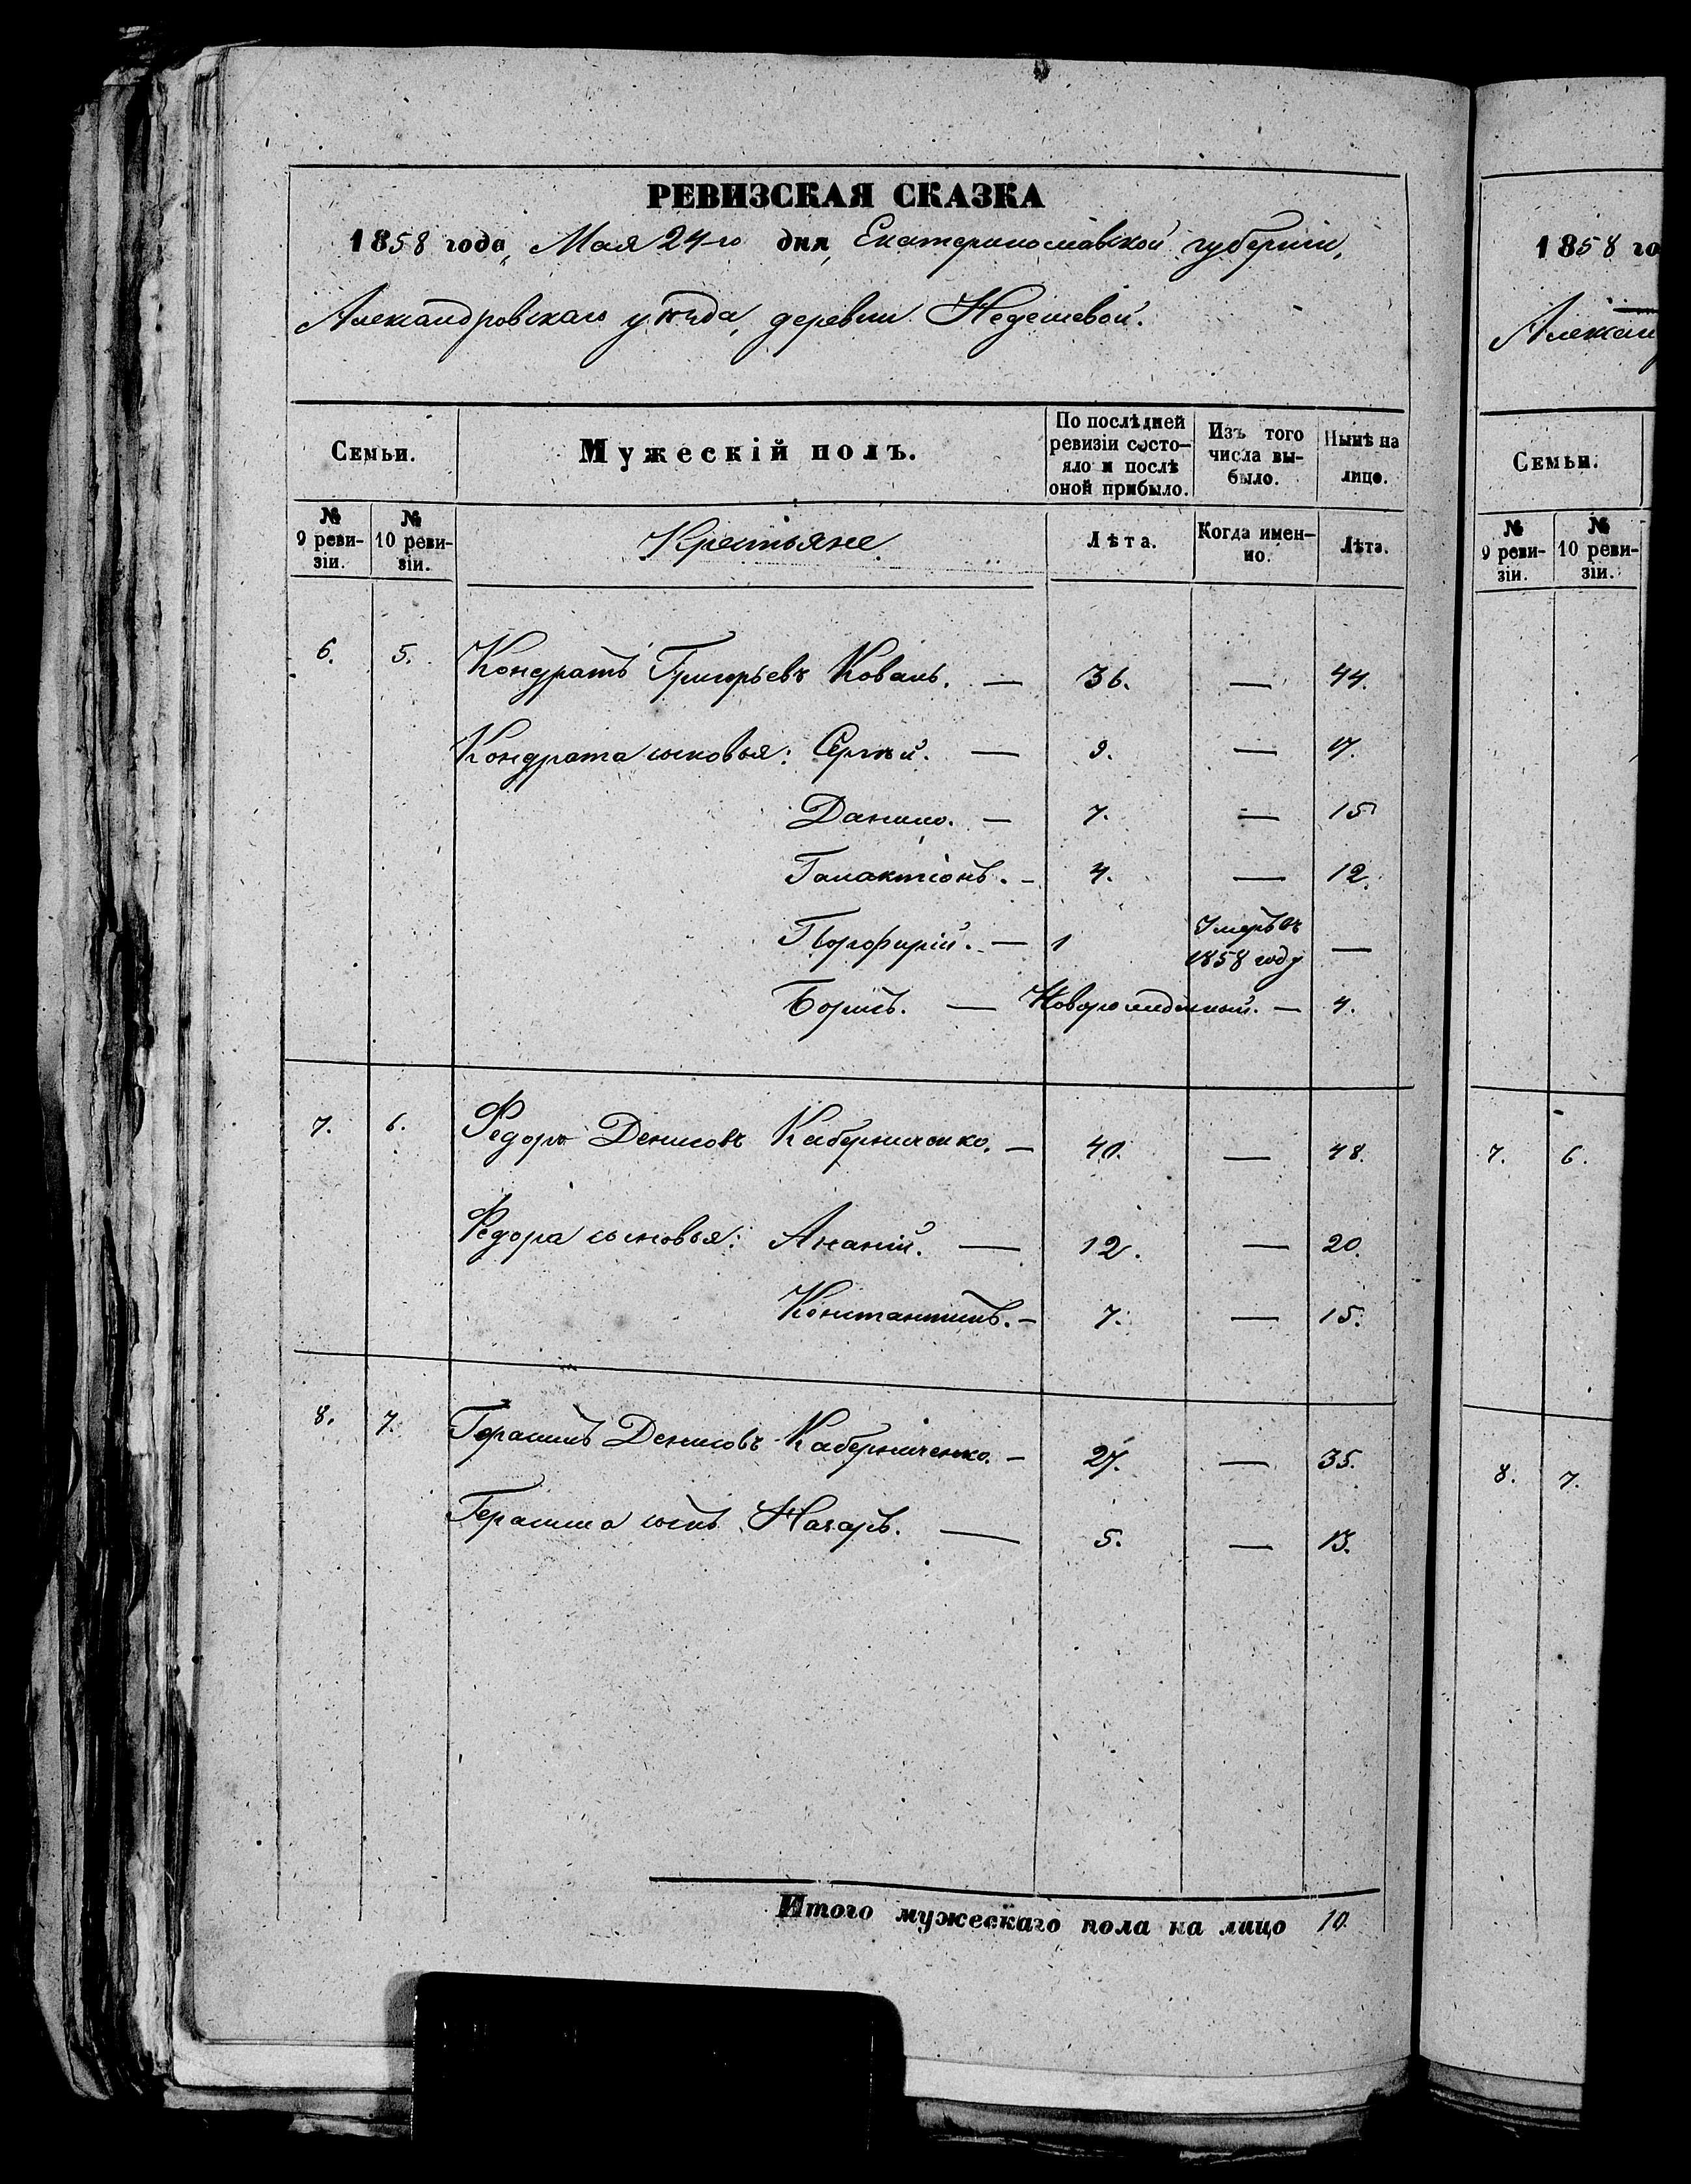 РЕВИЗСКАЯ СКАЗКА
1858 года, Мая 24-го дня, Екатеринославской губернiи,
Александровскаго уѣзда, деревни Недешевой.
Семьи.
Мужескiй полъ.
По послѣдней ревизiи состо-
яло и послѣ оной прибыло.
Изъ того числа вы-
было.
Нынѣ на лицо.
№ 9 реви-
зiи.
№ 10 реви-
зiи.
Крестьяне
Лѣта.
Когда имен-
но.
Лѣта.
6. 5. Кондратъ Григорьевъ Коваль. — 36. — 44.
Кондрата сыновья: Сергѣй. — 9. — 17.
Данило. — 7. — 15
Галактiонъ. — 4. — 12.
Порфирiй. — 1 Умеръ въ 1858 году —
Борисъ. — Новорожденный. — 4.
7. 6. Федоръ Денисовъ Каберниченко. — 40. — 48.
Федора сыновья: Ананiй. — 12. — 20.
Константинъ. — 7. — 15.
8. 7. Герасимъ Денисовъ Каберниченко. — 27. — 35.
Герасима сынъ Назаръ. — 5. — 13.
Итого мужескаго пола на лицо 10.
1858 го
Алексан
Семьи.
№ 9 реви-
зiи.
№ 10 реви-
зiи.
7. 6.
8. 7.